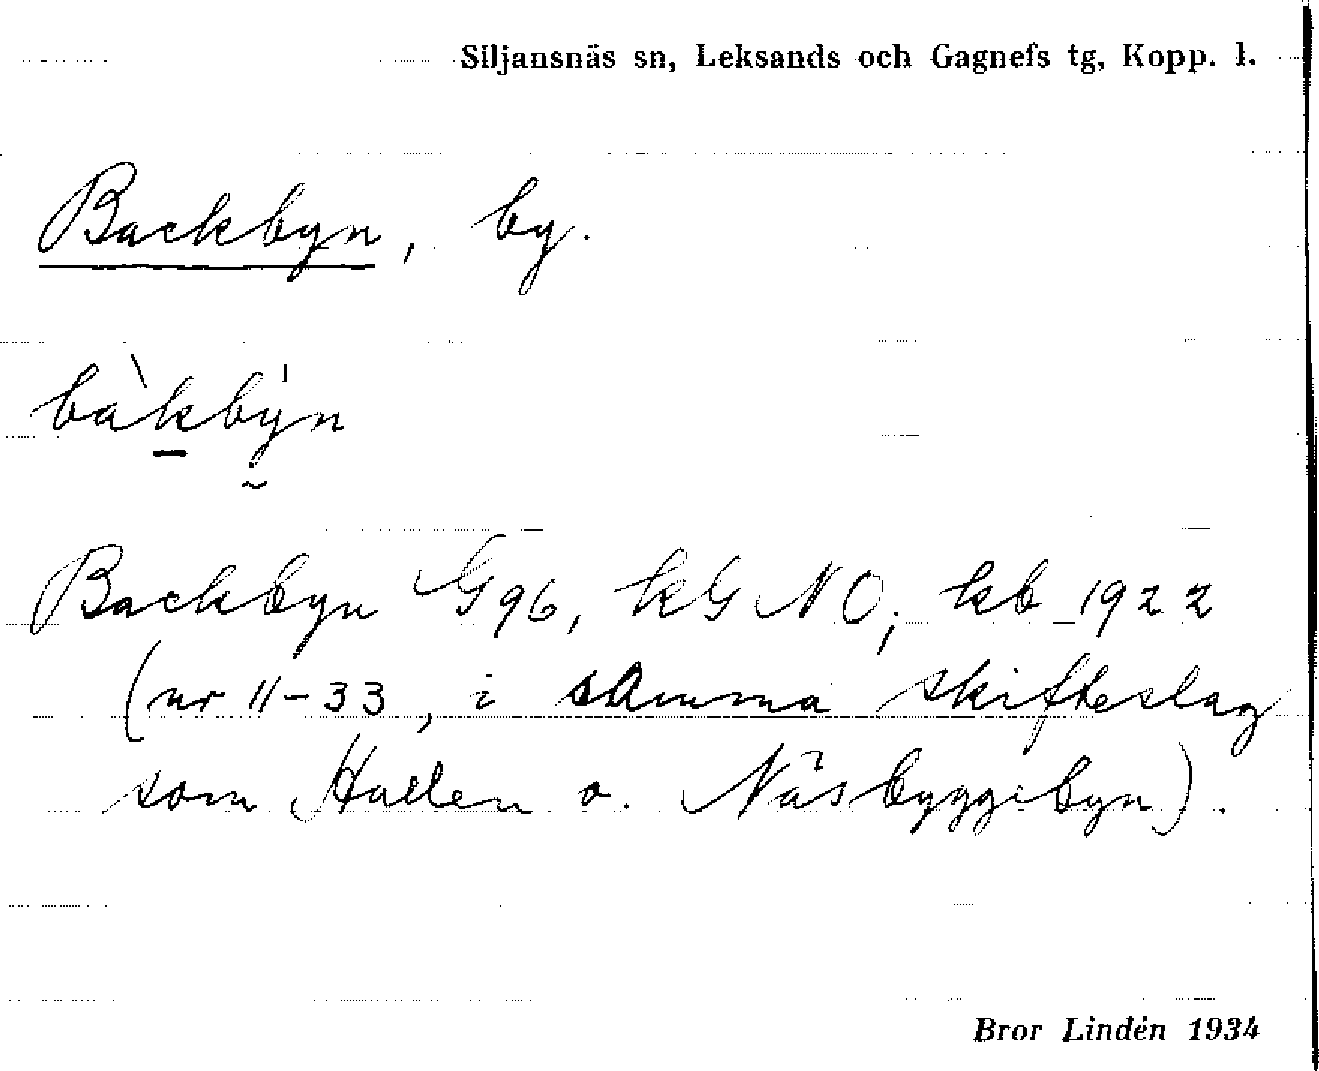 Siljansnäs sn, Leksands och Gagnefs tg, Kopp. l.
Backbyn, by.
bàkby̍n
Backbyn G96, kG NO; kb 1922
(nr 11-33, i samma skifteslag
som Hallen o. Näsbyggebyn).
Bror Lindén 1934